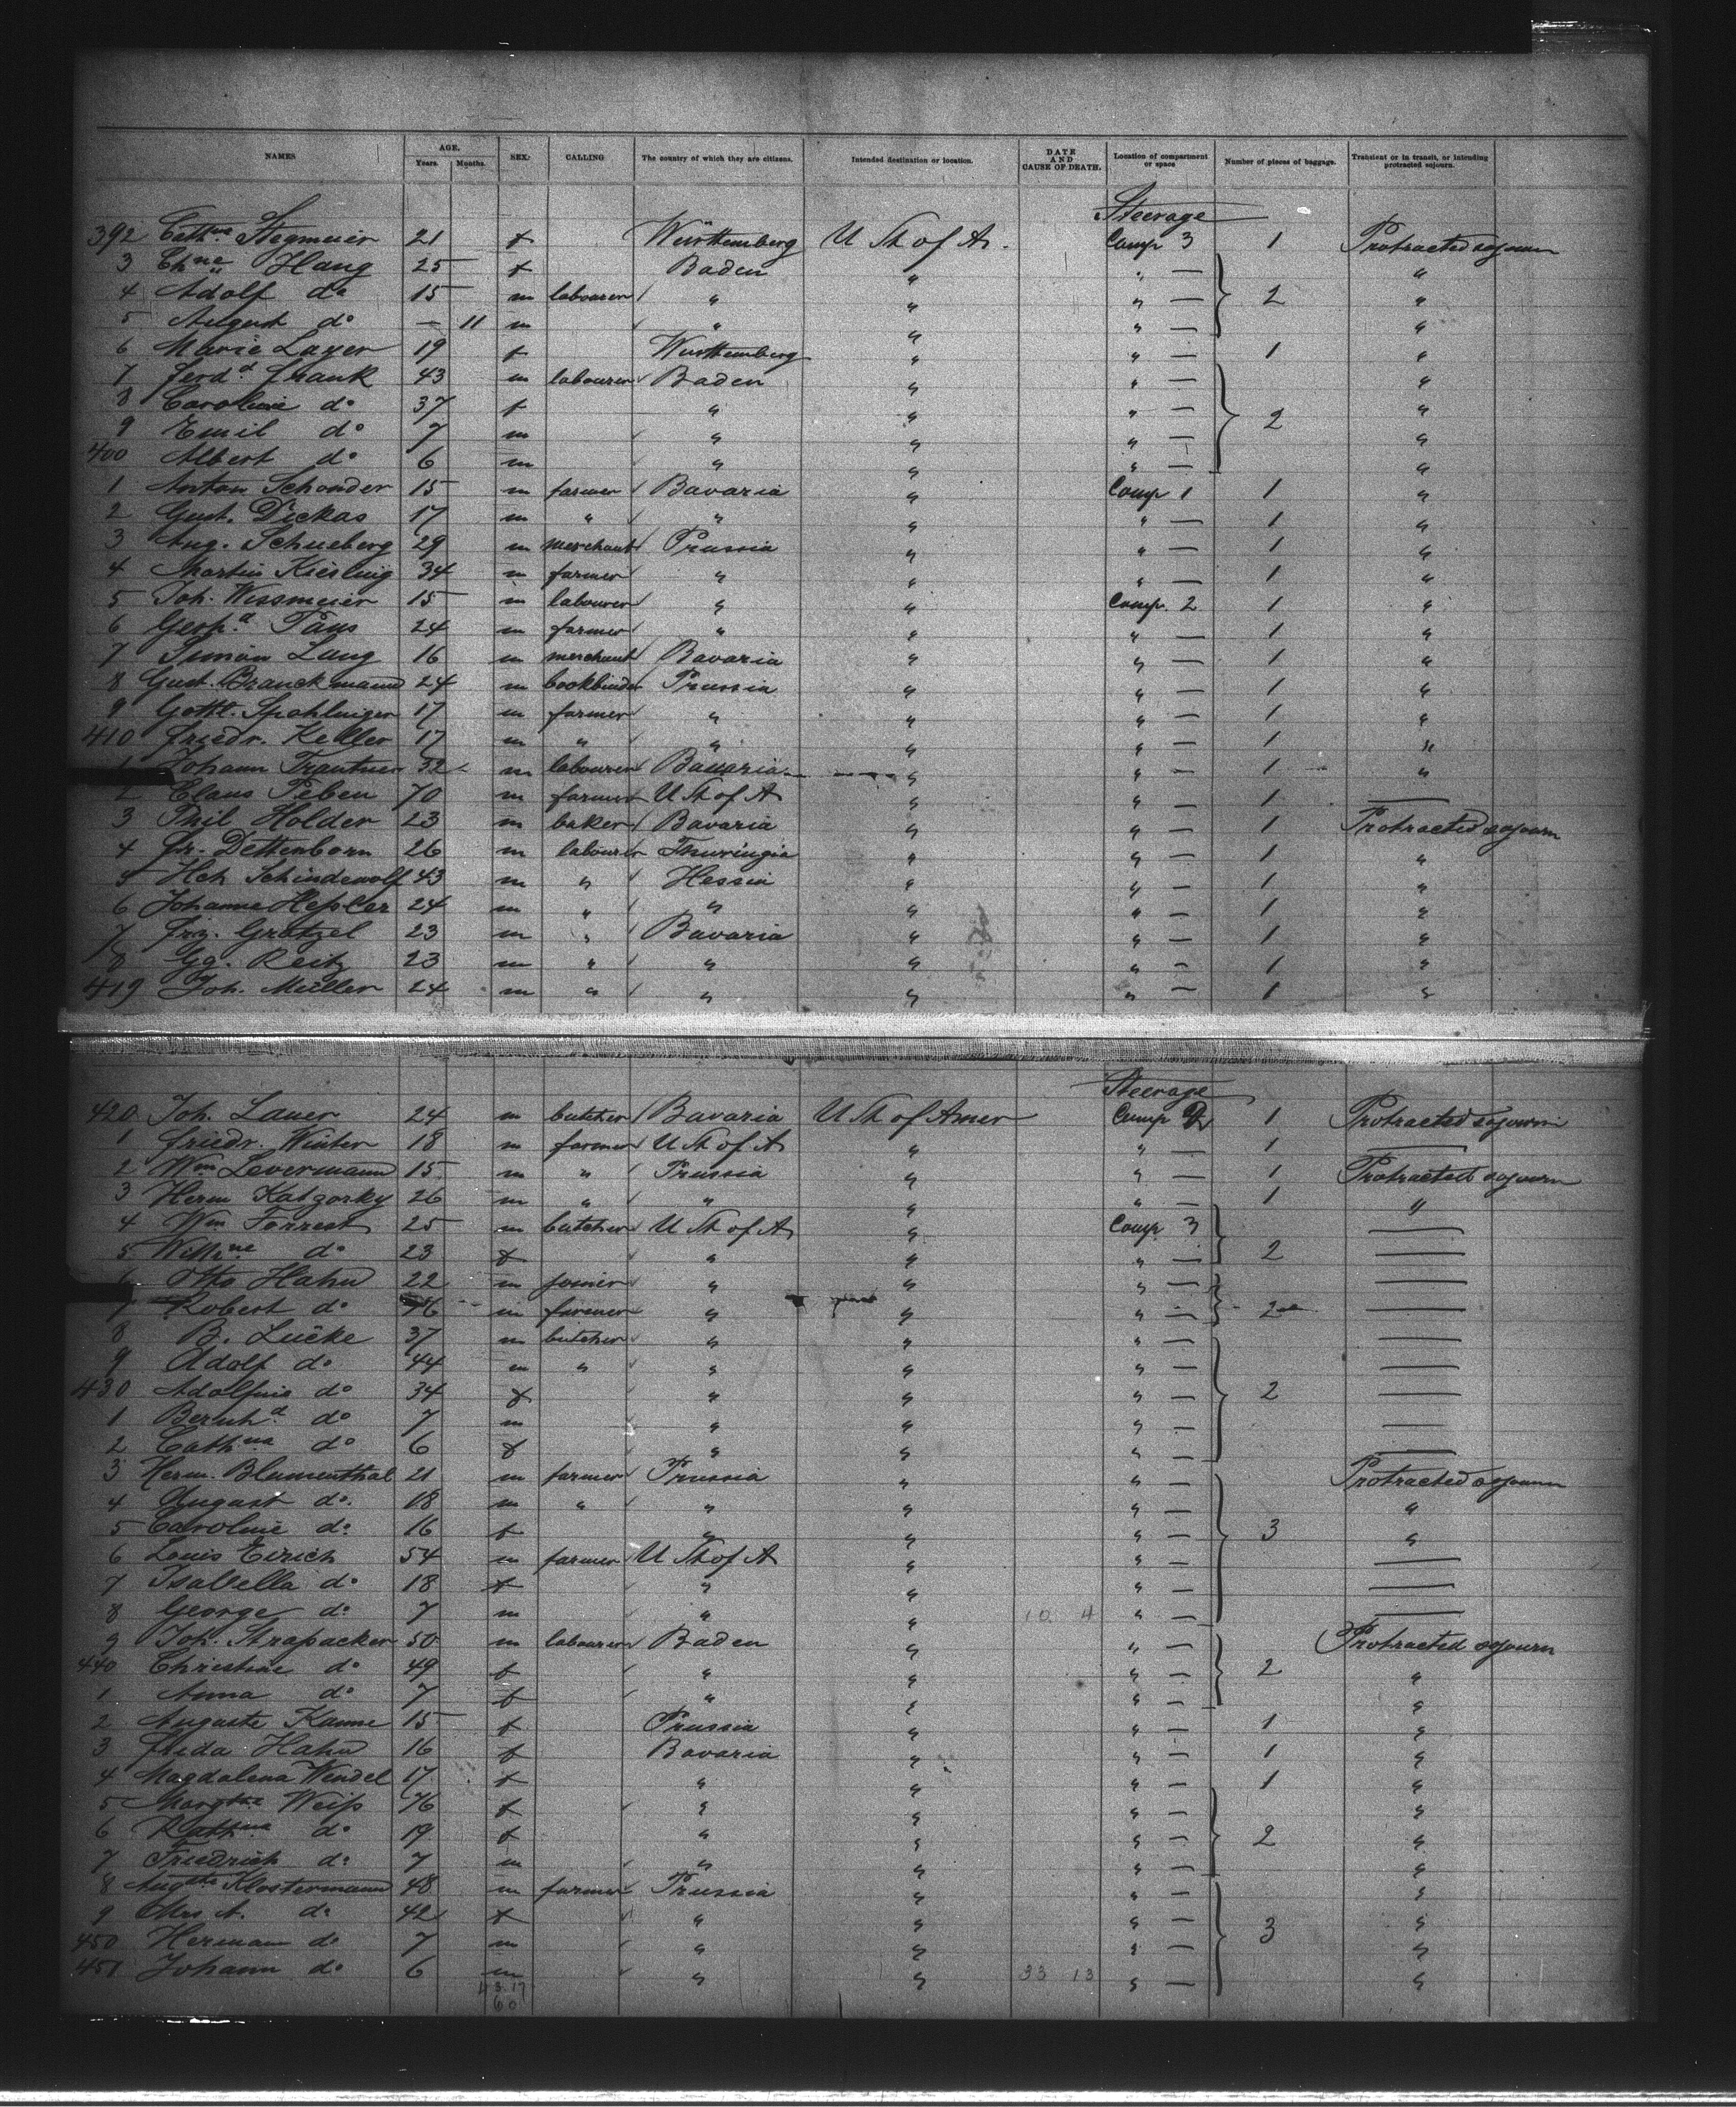 NAMES AGE. Years. Months. SEX: CALLING The country of which they are citizens. Intended destination or location. DATE AND CAUSE OF DEATH. Location of compartment or space Number of pieces of baggage. Transient or in transit, or intending protracted sojourn.
Steerage
392 Cathne Stegmeier 21 f Württemberg U St of A. Comp 3 1 Protracted sojourn
3 Chne Haug 25 f Baden " " — "
4 Adolf do 15 m labourer " " " — 2 "
5 August do — 11 m " " " — "
6 Marie Layer 19 f Württemberg " " — 1 "
7 Ferdd Frank 43 m labourer Baden " " — "
8 Caroline do 37 f " " " — "
9 Emil do 7 m " " " — 2 "
400 Albert do 6 m " " " — "
1 Anton Schonder 15 m farmer Bavaria " Comp 1 1 "
2 Gust. Dickas 17 m " " " " — 1 "
3 Aug. Schueberg 29 m merchant Prussia " " — 1 "
4 Martin Kiesling 34 m farmer " " " — 1 "
5 Joh. Wissmeier 15 m labourer " " Comp. 2 1 "
6 Paus 24 m farmer " " " — 1 "
7 Simon Lang 16 m merchant Bavaria " " — 1 "
8 Gust. Branckmann 24 m bookbinder Prussia " " — 1 "
9 Gottl. Spohlniger 17 m farmer " " " — 1 "
410 Friedr. Keller 17 m " " " " — 1 "
1 Johann Trautner 32 m labourer Bavaria " " — 1 "
2 Claus Peben 70 m farmer U St of A " " — 1 —
3 Phil Holder 23 m baker Bavaria " " — 1 Protracted sojourn
4 Fr. Dettenborn 26 m labourer Thuringia " " — 1 "
5 Hch Schindewolf 43 m " Hessia " " — 1 "
6 Johanne Heßler 24 m " " " " — 1 "
7 Frz. Gratzel 23 m " Bavaria " " — 1 "
8 Gg. Reitz 23 m " " " " — 1 "
419 Joh. Müller 24 m " " " " — 1 "
Steerage
420 Joh. Lauer 24 m butcher Bavaria U St of Amer Comp 2 1 Protracted sojourn
1 Friedr. Winter 18 m farmer U St of A " " — 1 —
2 Wm Levermann 15 m " Prussia " " — 1 Protracted sojourn
3 Herm Katzorky 26 m " " " " — 1 "
4 Wm Forrest 25 m butcher U St of A " Comp 3 —
5 Willne do 23 f " " " — 2 —
6 Otto Hahn 22 m joiner " " " — —
7 Robert do 16 m farmer " " " — 2 —
8 B. Lücke 37 m butcher " " " — —
9 Adolf do 44 m " " " " — —
430 Adolfnia do 34 f " " " — 2 —
1 Bernhd do 7 m " " " — —
2 Cathna do 6 f " " " — —
3 Herm. Blumenthal 21 m farmer Prussia " " — Protracted sojourn
4 August do. 18 m " " " " — "
5 Caroline do. 16 f " " " — 3 "
6 Louis Eirich 54 m farmer U St of A " " — —
7 Isabella do 18 f " " " — —
8 George do. 7 m " " 10 4 " — —
9 Joh. Strapacker 50 m labourer Baden " " — Protracted sojourn
440 Christine do 49 f " " " — 2 "
1 Anna do 7 f " " " — "
2 Auguste Kanne 15 f Prussia " " — 1 "
3 Frida Hahn 16 f Bavaria " " — 1 "
4 Magdalena Wendel 17 f " " " — 1 "
5 Margtha Weiß 76 f " " " — "
6 Kathna do 19 f " " " — 2 "
7 Friedrich do. 7 m " " " — "
8 Klostermann 48 m farmer Prussia " " — "
9 Mrs A. do. 42 f " " " — "
450 Herman do 7 m " " " — 3 "
451 Johann do. 6 m " " 33 13 " — "
43.17
60